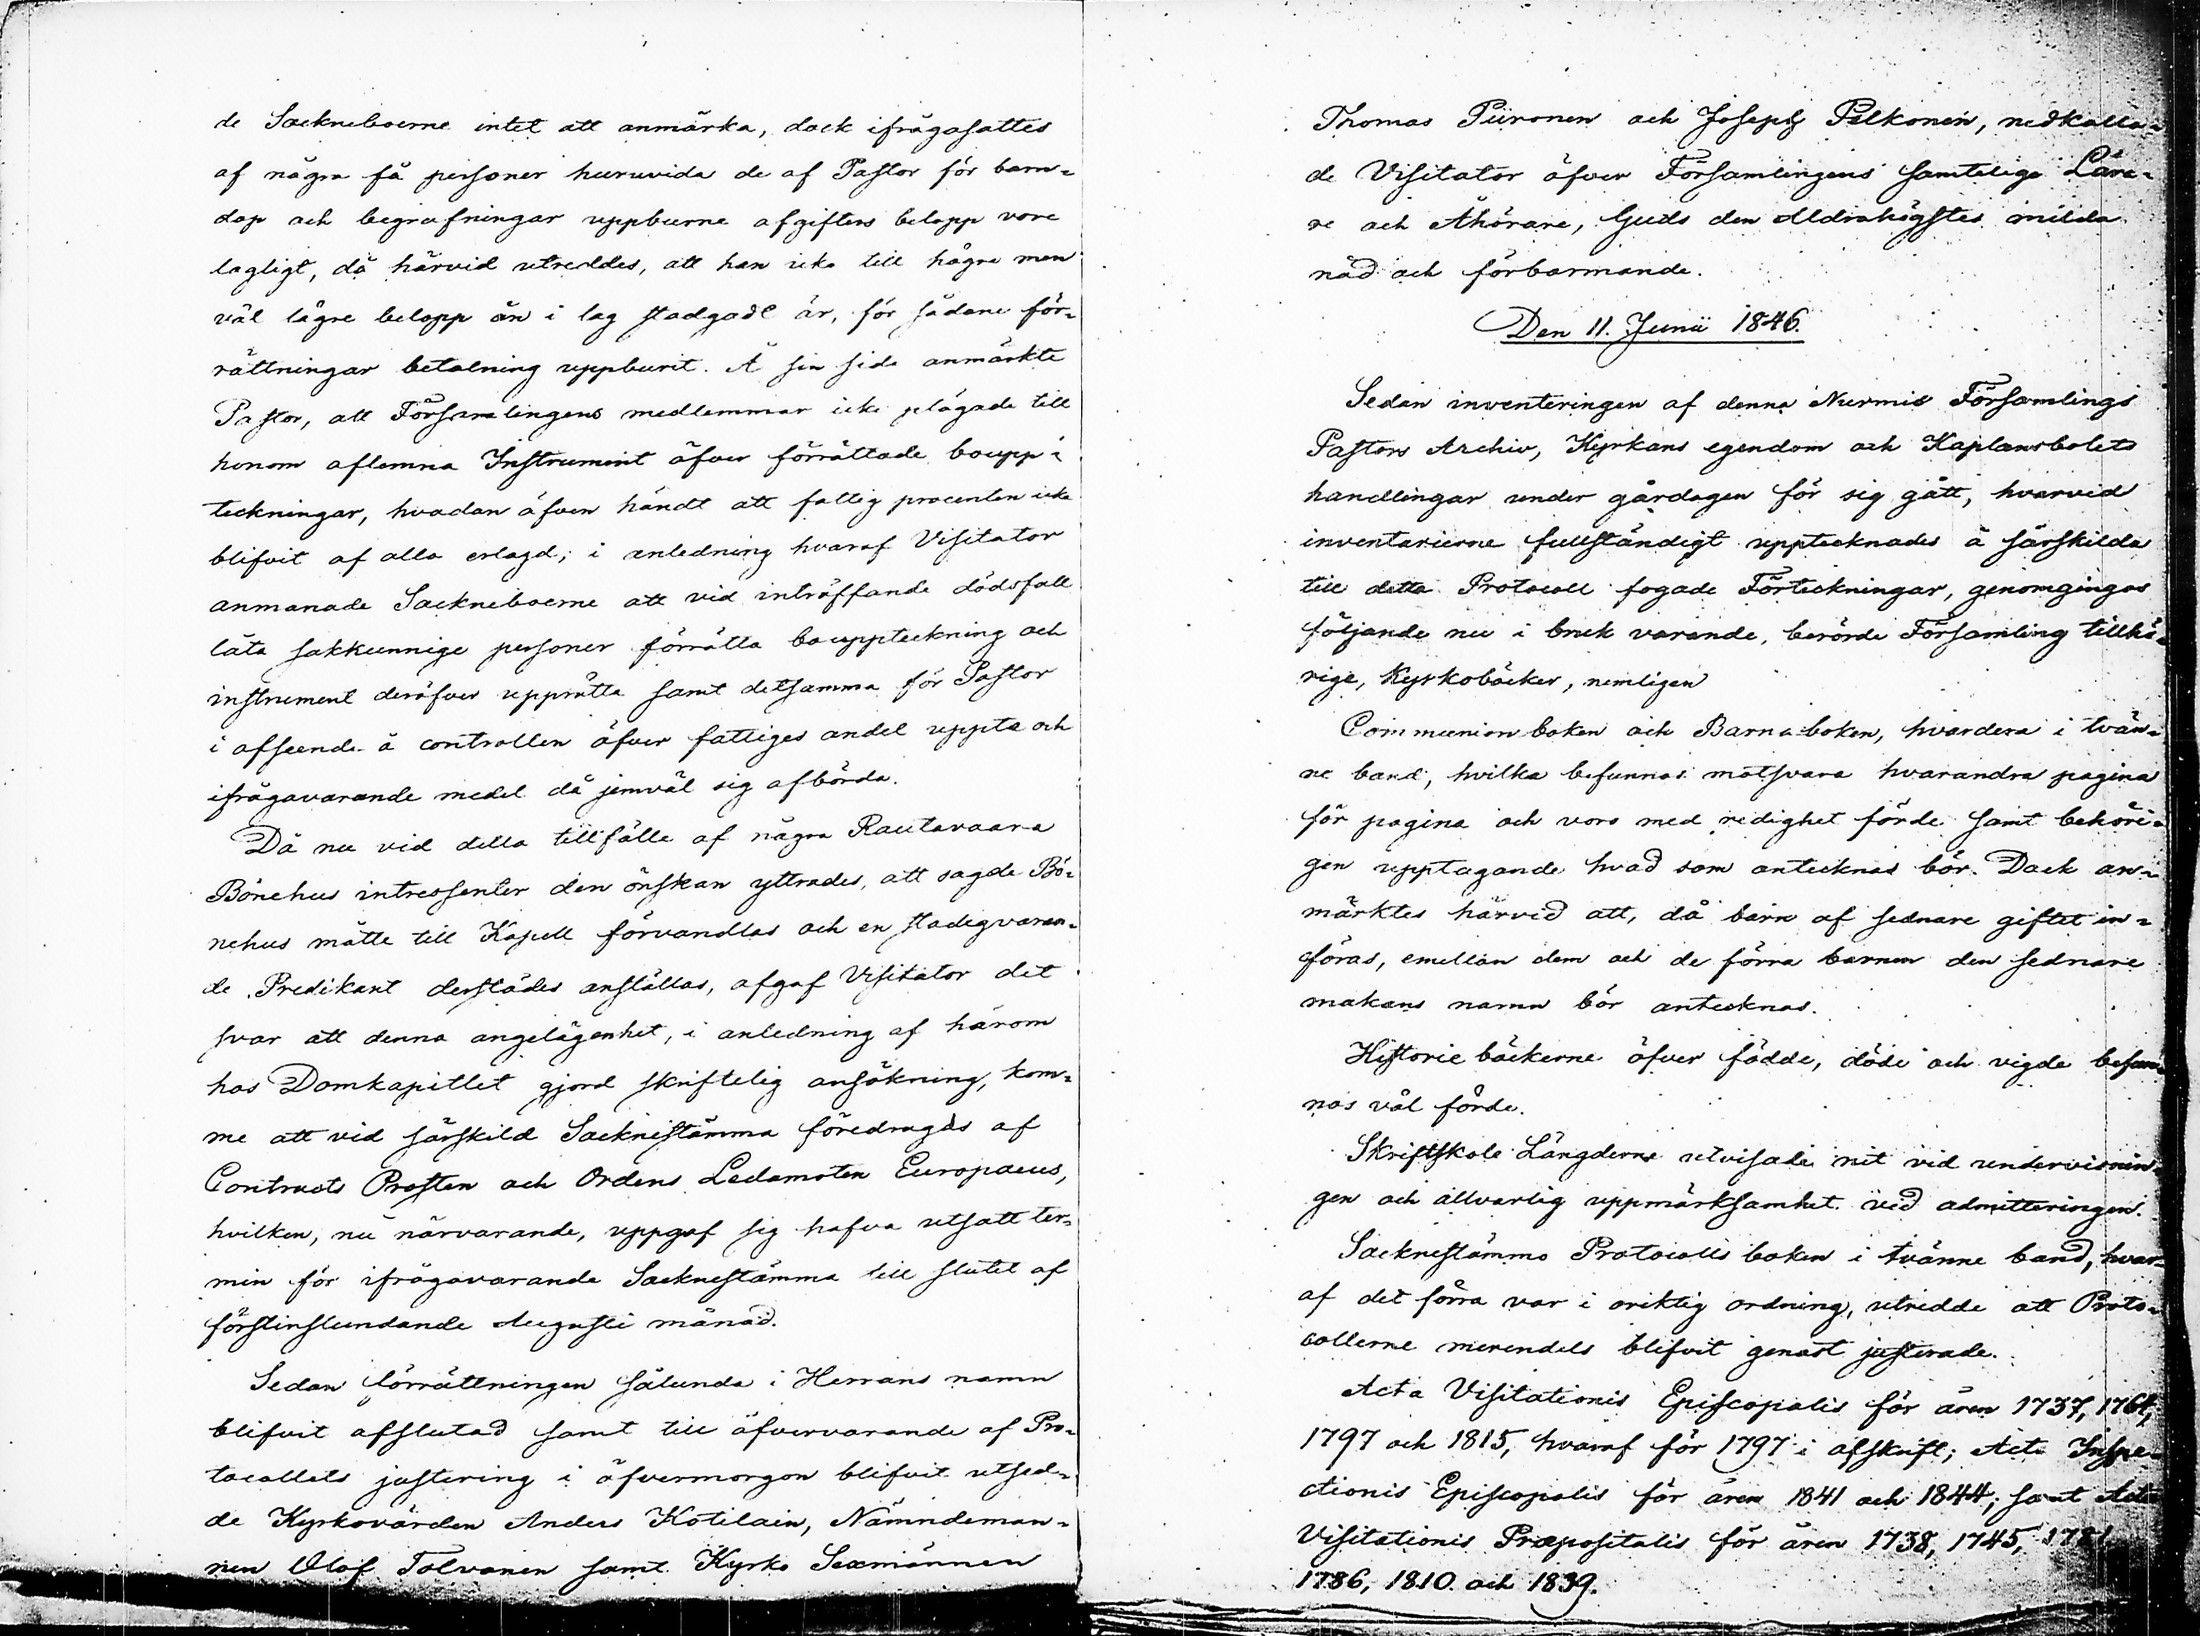 de Sockneboerne intet att anmärka, dock ifrågasattes
af några få personer huruvida de af Pastor för barn-
dop och begrafningar uppburne afgifters belopp vore
lagligt, då härvid utreddes, att han icke till högre men
väl lägre belopp än i lag stadgadt är, för sådane för-
rättningar betalning uppburit. Å sin sida anmärkte
Pastor, att Församlingens medlemmar icke plägade till
honom aflemna Instrument öfver förrättade boupp-
teckningar, hvadan äfven händt att fattig procenten icke
blifvit af alla erlagd; i anledning hvaraf Visitator
anmanade Sockneboerne att vid inträffande dödsfall
låta sakkunnige personer förrätta bouppteckning och
instrument deröfver upprätta samt detsamma för Pastor
i afseende å controllen öfver fattiges andel uppte och
ifrågavarande medel då jemväl sig afbörda.
Då nu vid detta tillfälle af några Rautavaara
Bönehus intressenter den önskan yttrades, att sagde Bö-
nehus måtte till Kapell förvandlas och en stadigvaran-
de Predikant derstädes anställas, afgaf Visitator det
svar att denna angelägenhet, i anledning af härom
hos Domkapitlet gjord skriftelig ansökning, kom-
me att vid särskild Socknestämma föredragas af
Contracts Prosten och Ordens Ledamoten Europaeus,
hvilken, nu närvarande, uppgaf sig hafva utsatt ter-
min för ifrågavarande Socknestämma till slutet af
förstinstundande Augusti månad.
Sedan förrättningen sålunda i Herrans namn
blifvit afslutad samt till öfvervarande af Pro-
tocollets justering i öfvermorgon blifvit utsed-
de Kyrkovärden Anders Kotilain, Nämndeman-
nen Olof Tolvanen samt Kyrko Sexmännen
Thomas Piironen och Joseph Pelkonen, nedkalla-
de Visitator öfver Församlingens samtelige Lära-
re och Åhörare, Guds den Aldrahögstes milda
nåd och förbarmande.
Den 11. Junii 1846.
Sedan inventeringen af denna Nurmis Församlings
Pastors Archiv, Kyrkans egendom och Kaplansbolets
handlingar under gårdagen för sig gått, hvarvid
inventarierne fullständigt upptecknades å särskilda
till detta Protocoll fogade Förteckningar, genomgingos
följande nu i bruk varande, berörde Församling tillhö-
rige, Kyrkoböcker, nemligen
Communion boken och Barna boken, hvardera i tvän-
ne band, hvilka befunnos motsvara hvarandra pagina
för pagina och voro med redighet förde samt behöri-
gen upptagande hvad som antecknas bör. Dock an-
märktes härvid att, då barn af sednare giftet in-
föras, emellan dem och de förra barnen den sednare
makans namn bör antecknas.
Historie böckerne öfver födde, döde och vigde befun-
nos väl förde.
Skriftskole Längderne utvisade nit vid undervisnin-
gen och allvarlig uppmärksamhet vid admitteringen.
Socknestämmo Protocolls boken i tvänne band, hvar-
af det förra var i oriktig ordning, utredde att Proto-
collerne merendels blifvit genast justerade.
Acta Visitationis Episcopalis för åren 1737, 1764,
1797 och 1815, hvaraf för 1797 i afskrift; Acta Inspe-
ctionis Episcopalis för åren 1841 och 1844; samt Acta
Visitationis Præpositalis för åren 1738, 1745, 1781
1786, 1810 och 1839.